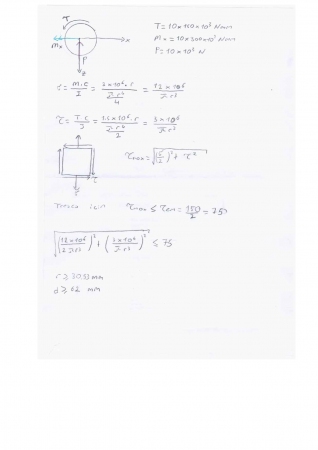 T
x
Mx
P
z
T = 10×150×10³ Nmm
Mx = 10×300×10³ Nmm
P = 10×10³ N
σ = M.c/I = 3×10⁶.r/(πr⁴/4) = 12×10⁶/πr³
τ = T.c/J = 1.5×10⁶.r/(πr⁴/2) = 3×10⁶/πr³
τmax = √((σ/2)² + τ²)
τ
σ
Tresca için τmax ≤ τem = 150/2 = 75
√((12×10⁶/2πr³)² + (3×10⁶/πr³)²) ≤ 75
mm
d ≥ 62 mm